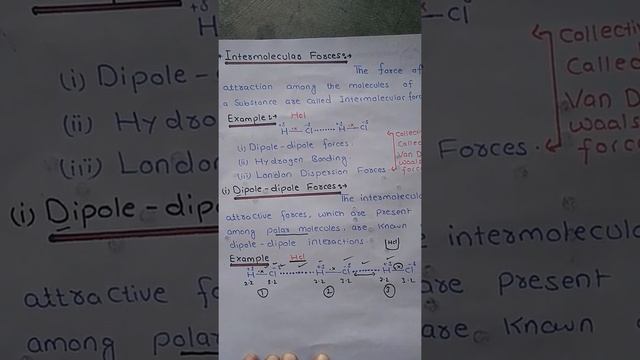 Intermolecular Forces:→
The force of
attraction among the molecules of
a Substance are called Intermolecular forc
Example:→ Hcl
+δ -δ +δ -δ
H—x—Cl ........ H—x—Cl
(i) Dipole-dipole forces.
(ii) Hydrogen Bonding.
(iii) London Dispersion Forces.
Collectiv
Called
Van D
waals
forc
(i) Dipole-dipole Forces:→
The intermolecul
attractive forces, which are present
among polar molecules, are known
dipole-dipole interactions.
Hcl
Example Hcl
+δ -δ +δ -δ +δ -δ
H—x—Cl ........ H—x—Cl ........ H—x—Cl
2.2 3.2 2.2 3.2 2.2 3.2
1 2 3